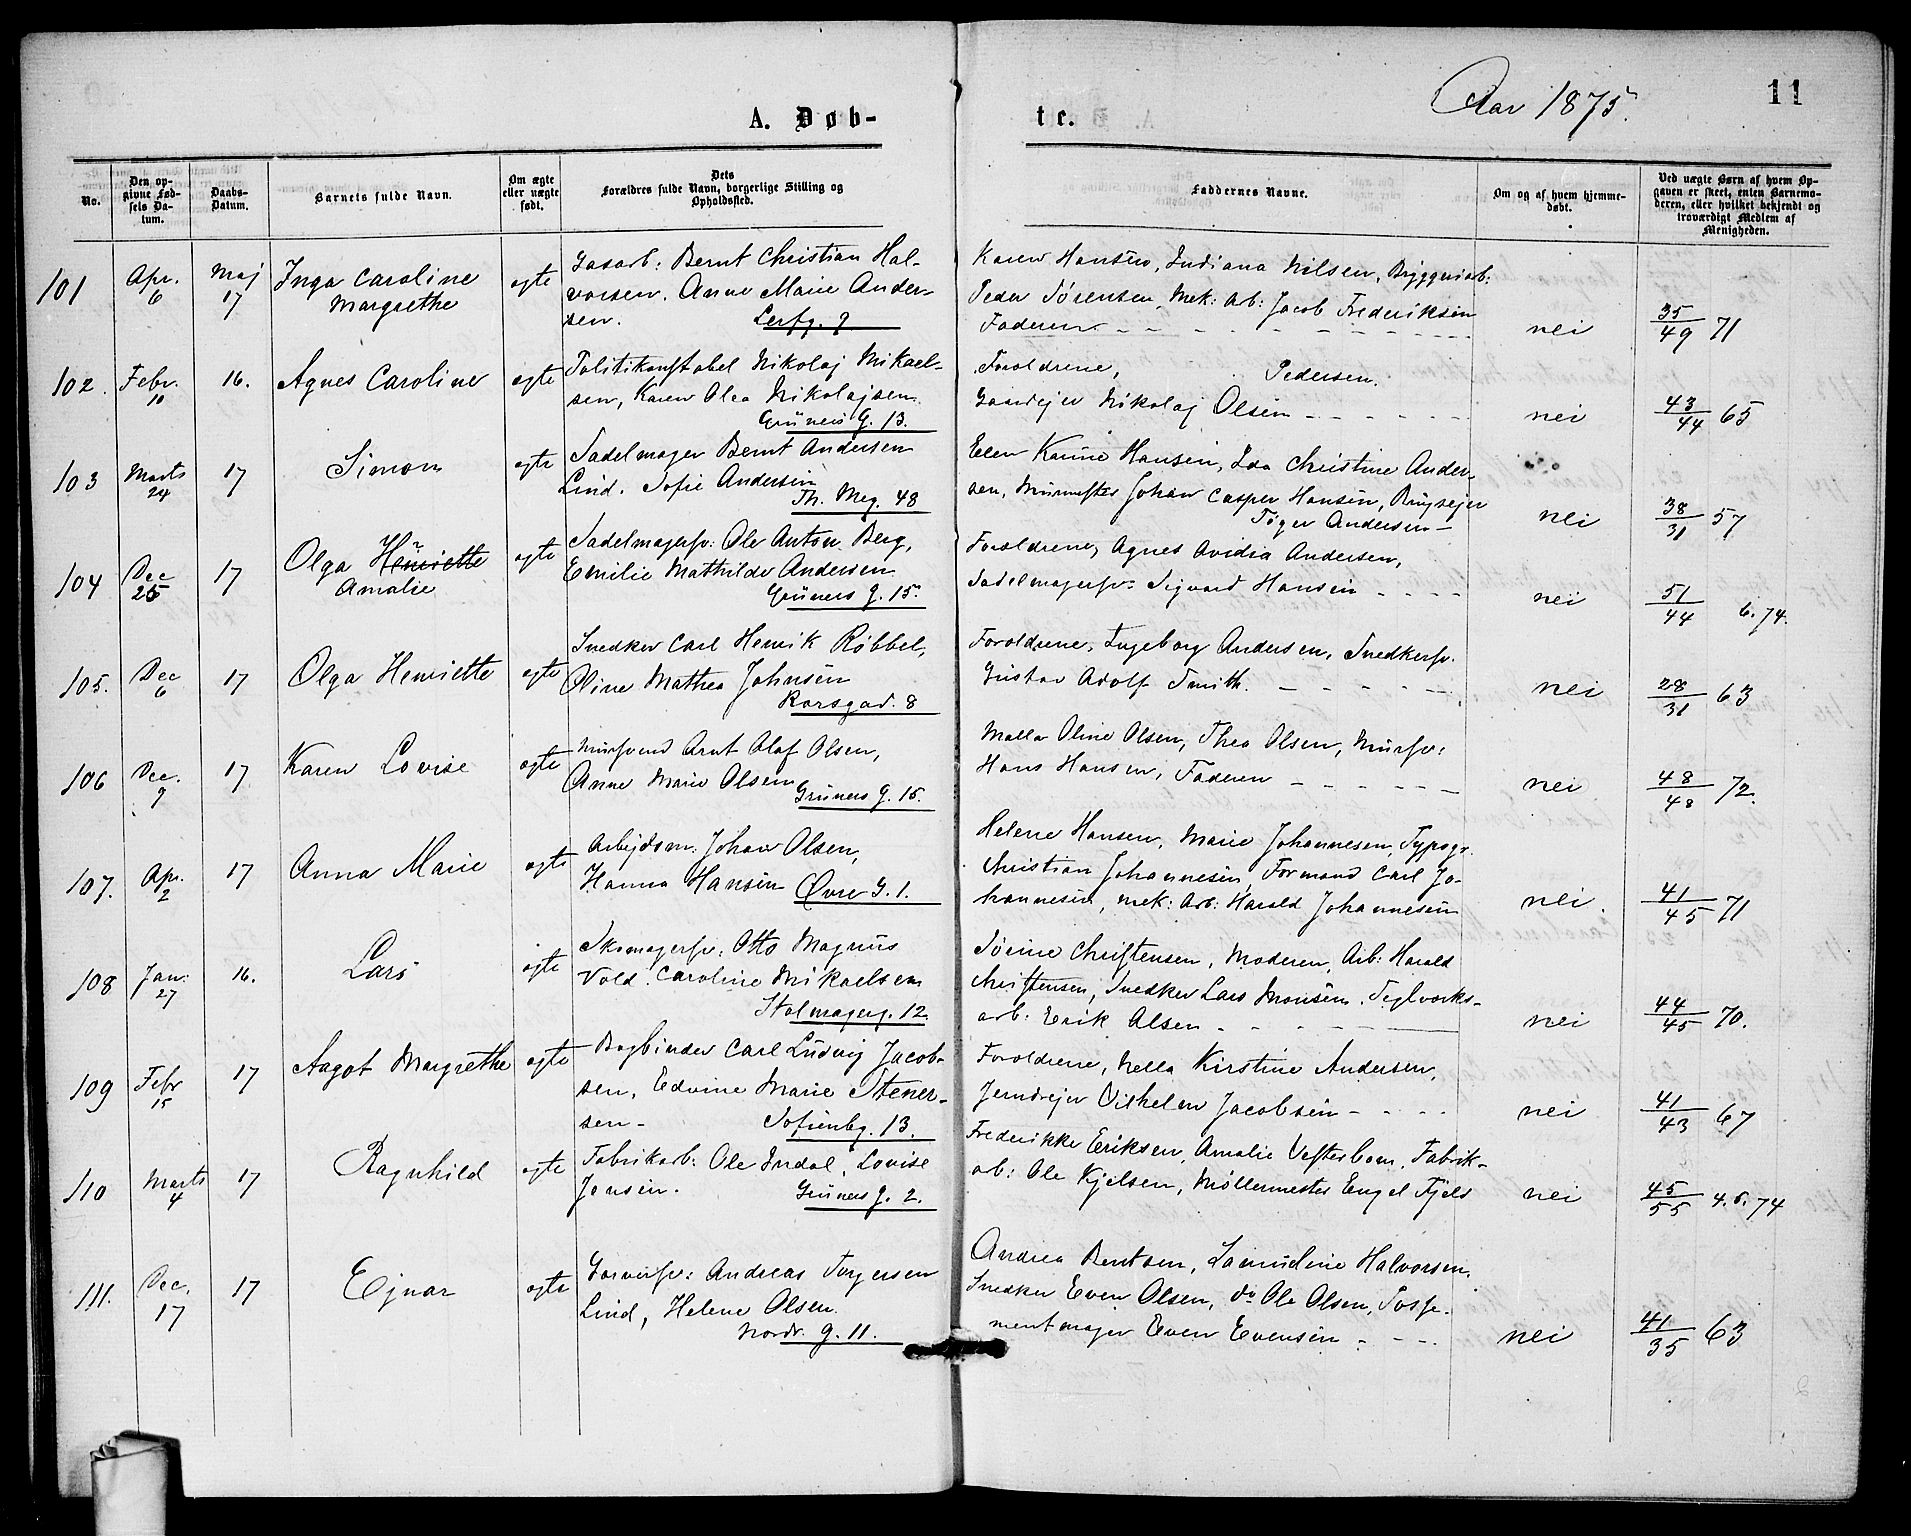 A. Døb-
te.
Aar 1875.
11
No.
Den op-
givne Fød-
sels Da-
tum.
Daabs-
Datum.
Barnets fulde Navn.
Om ægte
eller uægte
født.
Dets
Forældres fulde Navn, borgerlige Stilling og
Opholdssted.
Faddernes Navne.
Om og af hvem hjemme-
døbt.
Ved uægte Børn af hvem Op-
gaven er skeet, enten Barnemo-
deren, eller hvilket bekjendt og
troværdigt Medlem af
Menigheden.
101
Apr.
6
Maj
17
Inga Caroline
Margrethe
ægte
Gasarb: Bernt Christian Hal-
vorsen. Anne Marie Ander-
sen.
9
Karen Hansen, Indiana Nilsen, Bryggeriarb:
Peder Sørensen, Mek: Arb: Jacob Frederiksen
Faderen - - - - - - - -
nei
35/49 71
102.
Febr.
10
16.
Agnes Caroline
ægte
Politikonstabel Nikolaj Mikael-
sen, Karen Olea Nikolajsen.
Grüners G. 13.
Forældrene, Pedersen.
Gaardejer Nikolaj Olsen - - - - -
nei
43/44 65
103
Marts
24
17
Simon
ægte
Sadelmager Bernt Andersen
Lind. Sofie Andersen
Th. Meg. 48
Elen Karine Hansen, Ida Christine Ander-
sen, Murmester Johan Casper Hansen, Brugsejer
Tøger Andersen -
nei
38/31 57
104
Dec
25
17
Olga Henriette
Amalie
ægte
Sadelmagersv: Ole Anton Berg,
Emilie Mathilde Andersen
Grüners g. 15.
Forældrene, Agnes Avidia Andersen,
Sadelmagersv: Sigvard Hansen - - - -
nei
51/44 6.74.
105.
Dec
6
17
Olga Henriette
ægte
Snedker Carl Henrik Röbbel,
Oline Mathea Johnsen
Korsgad. 8
Forældrene, Ingeborg Andersen, Snedkersv.
Gustav Adolf Smith. - - - - -
nei
28/31 63
106
Dec.
9
17
Karen Lovise
ægte
Mursvend Arnt Olaf Olsen,
Anne Marie Olsen
Grüners g. 15.
Malla Oline Olsen, Thea Olsen, Mursv:
Hans Hansen, Faderen - - - - - -
nei
48/48 72.
107.
Apr.
2
17
Anna Marie
ægte
Arbejdsm: Johan Olsen,
Hanna Hansen Øvre G. 1.
Helene Hansen, Marie Johannesen, Typogr.
Christian Johannesen, Formand Carl Jo-
hannesen, mek: Arb: Harald Johannesen
nei.
41/45 71
108
Jan:
27
16.
Lars
ægte
Skomagersv: Otto Magnus
Vold. Caroline Mikaelsen
Stolmagerg. 12.
Sørine Christensen, Moderen, Arb: Harald
Christensen, Snedker Lars Monsen. Teglværks-
arb: Erik Olsen - - - -
nei
44/45 70.
109
Febr
15
17
Aagot Margrethe
ægte
Bogbinder Carl Ludvig Jacob-
sen, Edvine Marie Stener-
sen- Sofienbg. 13.
Forældrene, Nella Kirstine Andersen,
Vilhelm Jacobsen - - - -
nei
41/43 67
110
Marts
4
17
Ragnhild
ægte
Fabrikarb: Ole Indal, Lovise
Jonsen. Grüners g. 2.
Frederikke Eriksen, Amalie Vesterbom, Fabrik-
arb: Ole Kjelsen, Møllermester Engel Fjels
nei
45/55 4.6.74
111.
Dec.
17
17
Ejnar
ægte
Garversv: Andreas Torgersen
Lind, Helene Olsen.
Nordr. g. 11.
Andrea Bentsen, Lamudine Halvorsen,
Snedker Even Olsen, do Ole Olsen, Posse-
mentmager Even Evensen - - -
nei
41/35 63